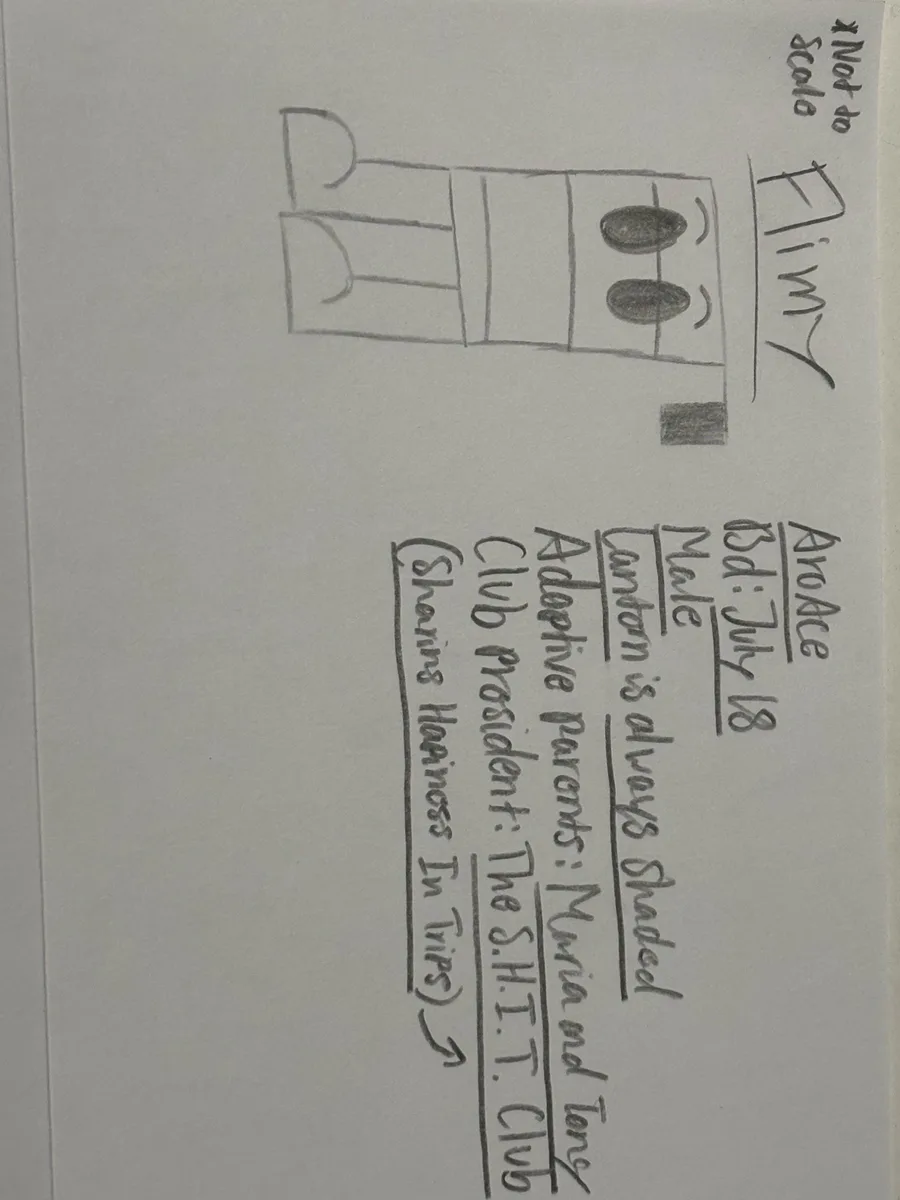 *Not to
scale
Flimy
AroAce
Bd: July 18
Male
Lantorn is always shaded
Adoptive parents: Maria and Tony
Club president: The S.H.I.T. Club
(Sharins Hapiness In Trips)